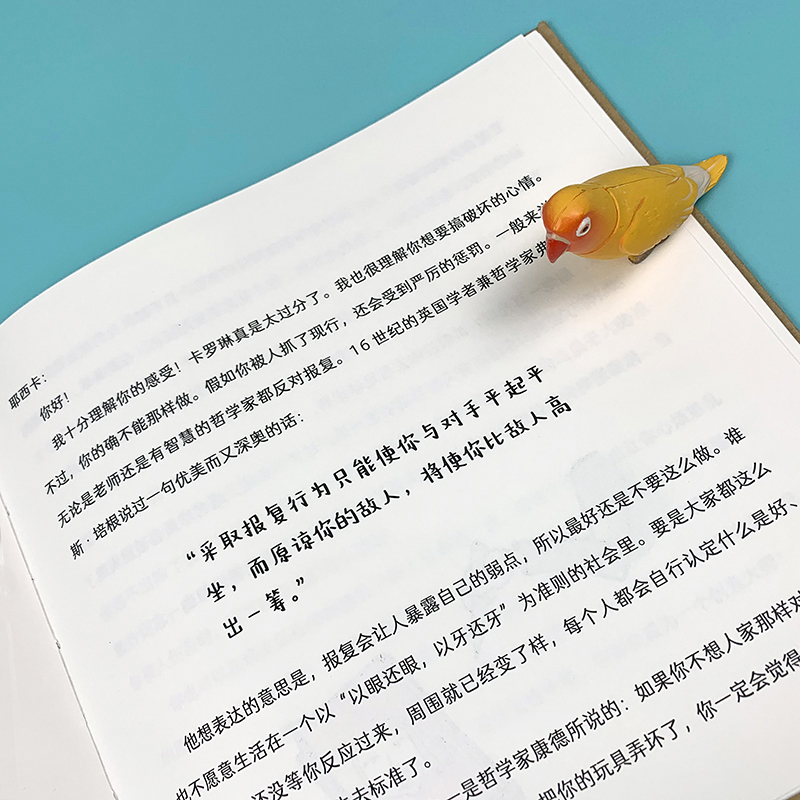 耶西卡：
你好！
我十分理解你的感受！卡罗琳真是太过分了。我也很理解你想要搞破坏的心情。
不过，你的确不能那样做。假如你被人抓了现行，还会受到严厉的惩罚。一般来说
无论是老师还是有智慧的哲学家都反对报复。16世纪的英国学者兼哲学家弗
斯·培根说过一句优美而又深奥的话：
“采取报复行为只能使你与对手平起平
坐，而原谅你的敌人，将使你比敌人高
出一等。”
他想表达的意思是，报复会让人暴露自己的弱点，所以最好还是不要这么做。谁
也不愿意生活在一个以“以眼还眼，以牙还牙”为准则的社会里。要是大家都这么
还没等你反应过来，周围就已经变了样，每个人都会自行认定什么是好、
去标准了。
一是哲学家康德所说的：如果你不想人家那样对
把你的玩具弄坏了，你一定会觉得